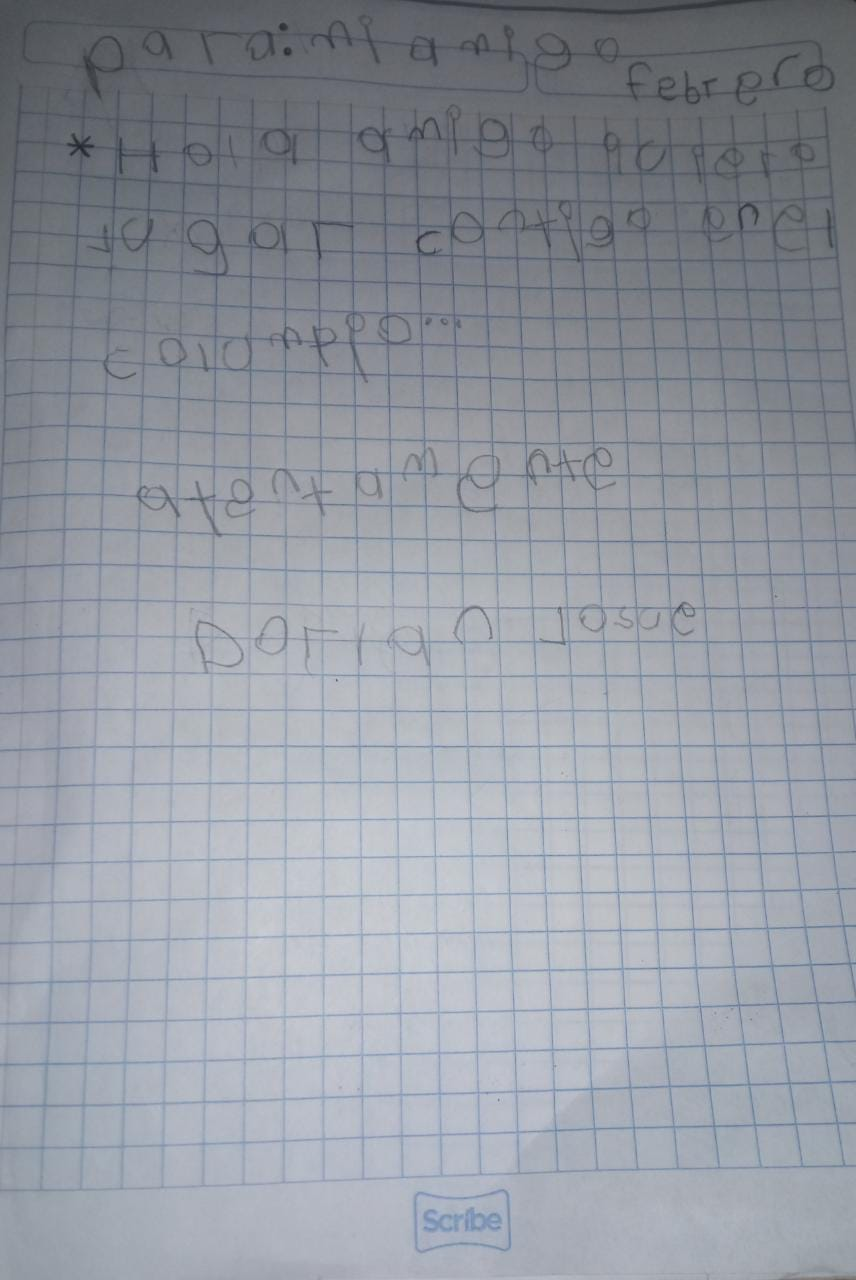 para: mi amigo
febrero
* Hola amigo quiero
jugar contigo en el
columpio...
atentamente
Dorian Josue
Scribe